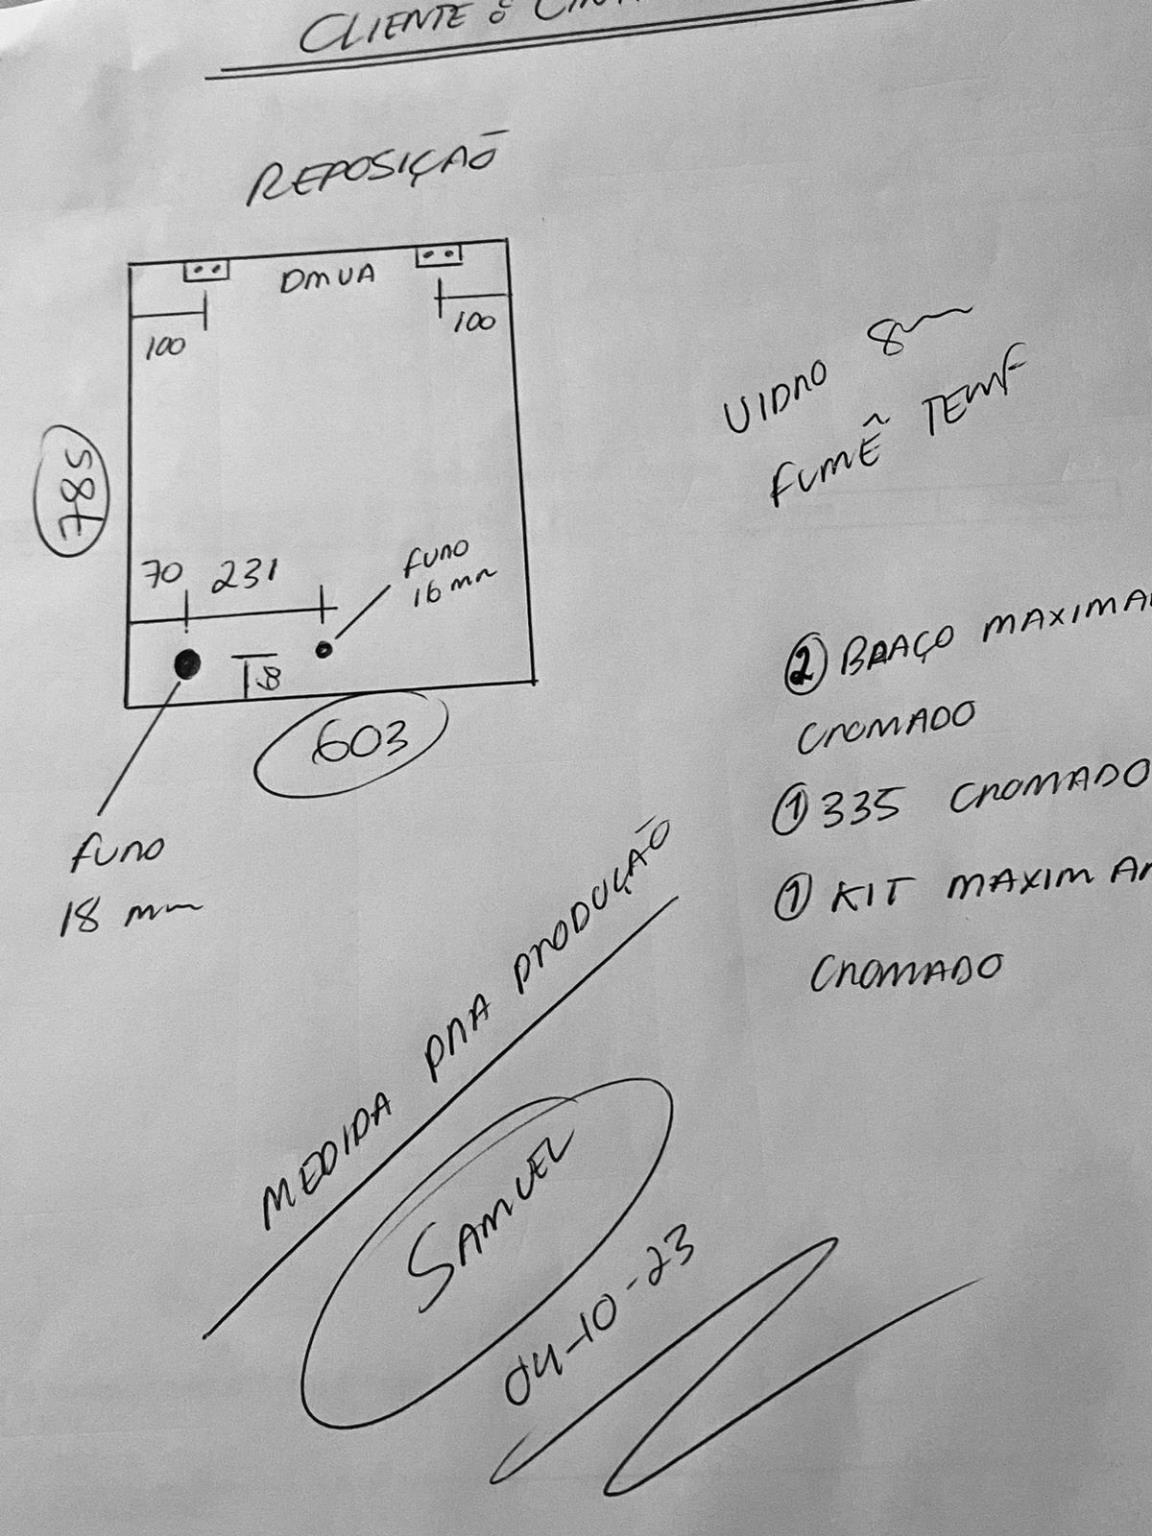 CLIENTE :
REPOSIÇÃO
DMUA
100
100
785
70 231
FURO
16 mm
18
603
FURO
18 mm
VIDRO 8mm
FUMÊ TEMP
② BRAÇO MAXIMA
CROMADO
① 335 CROMADO
① KIT MAXIM AR
CROMADO
MEDIDA PRA PRODUÇÃO
SAMUEL
04-10-23